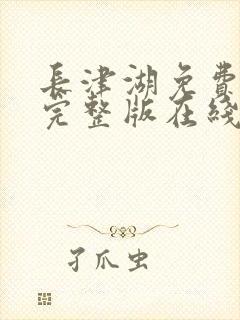 長津湖免費
完整版在綫
孑爪虫